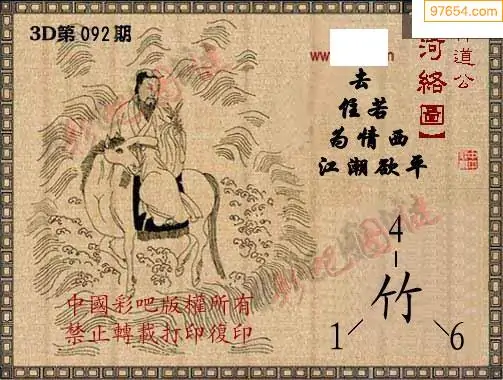 97654.com
3D第092期
www
道公
河絡圖】
去
住若
为情西
江潮欲平
4
竹
1
6
中國彩吧版權所有
禁止轉載打印復印